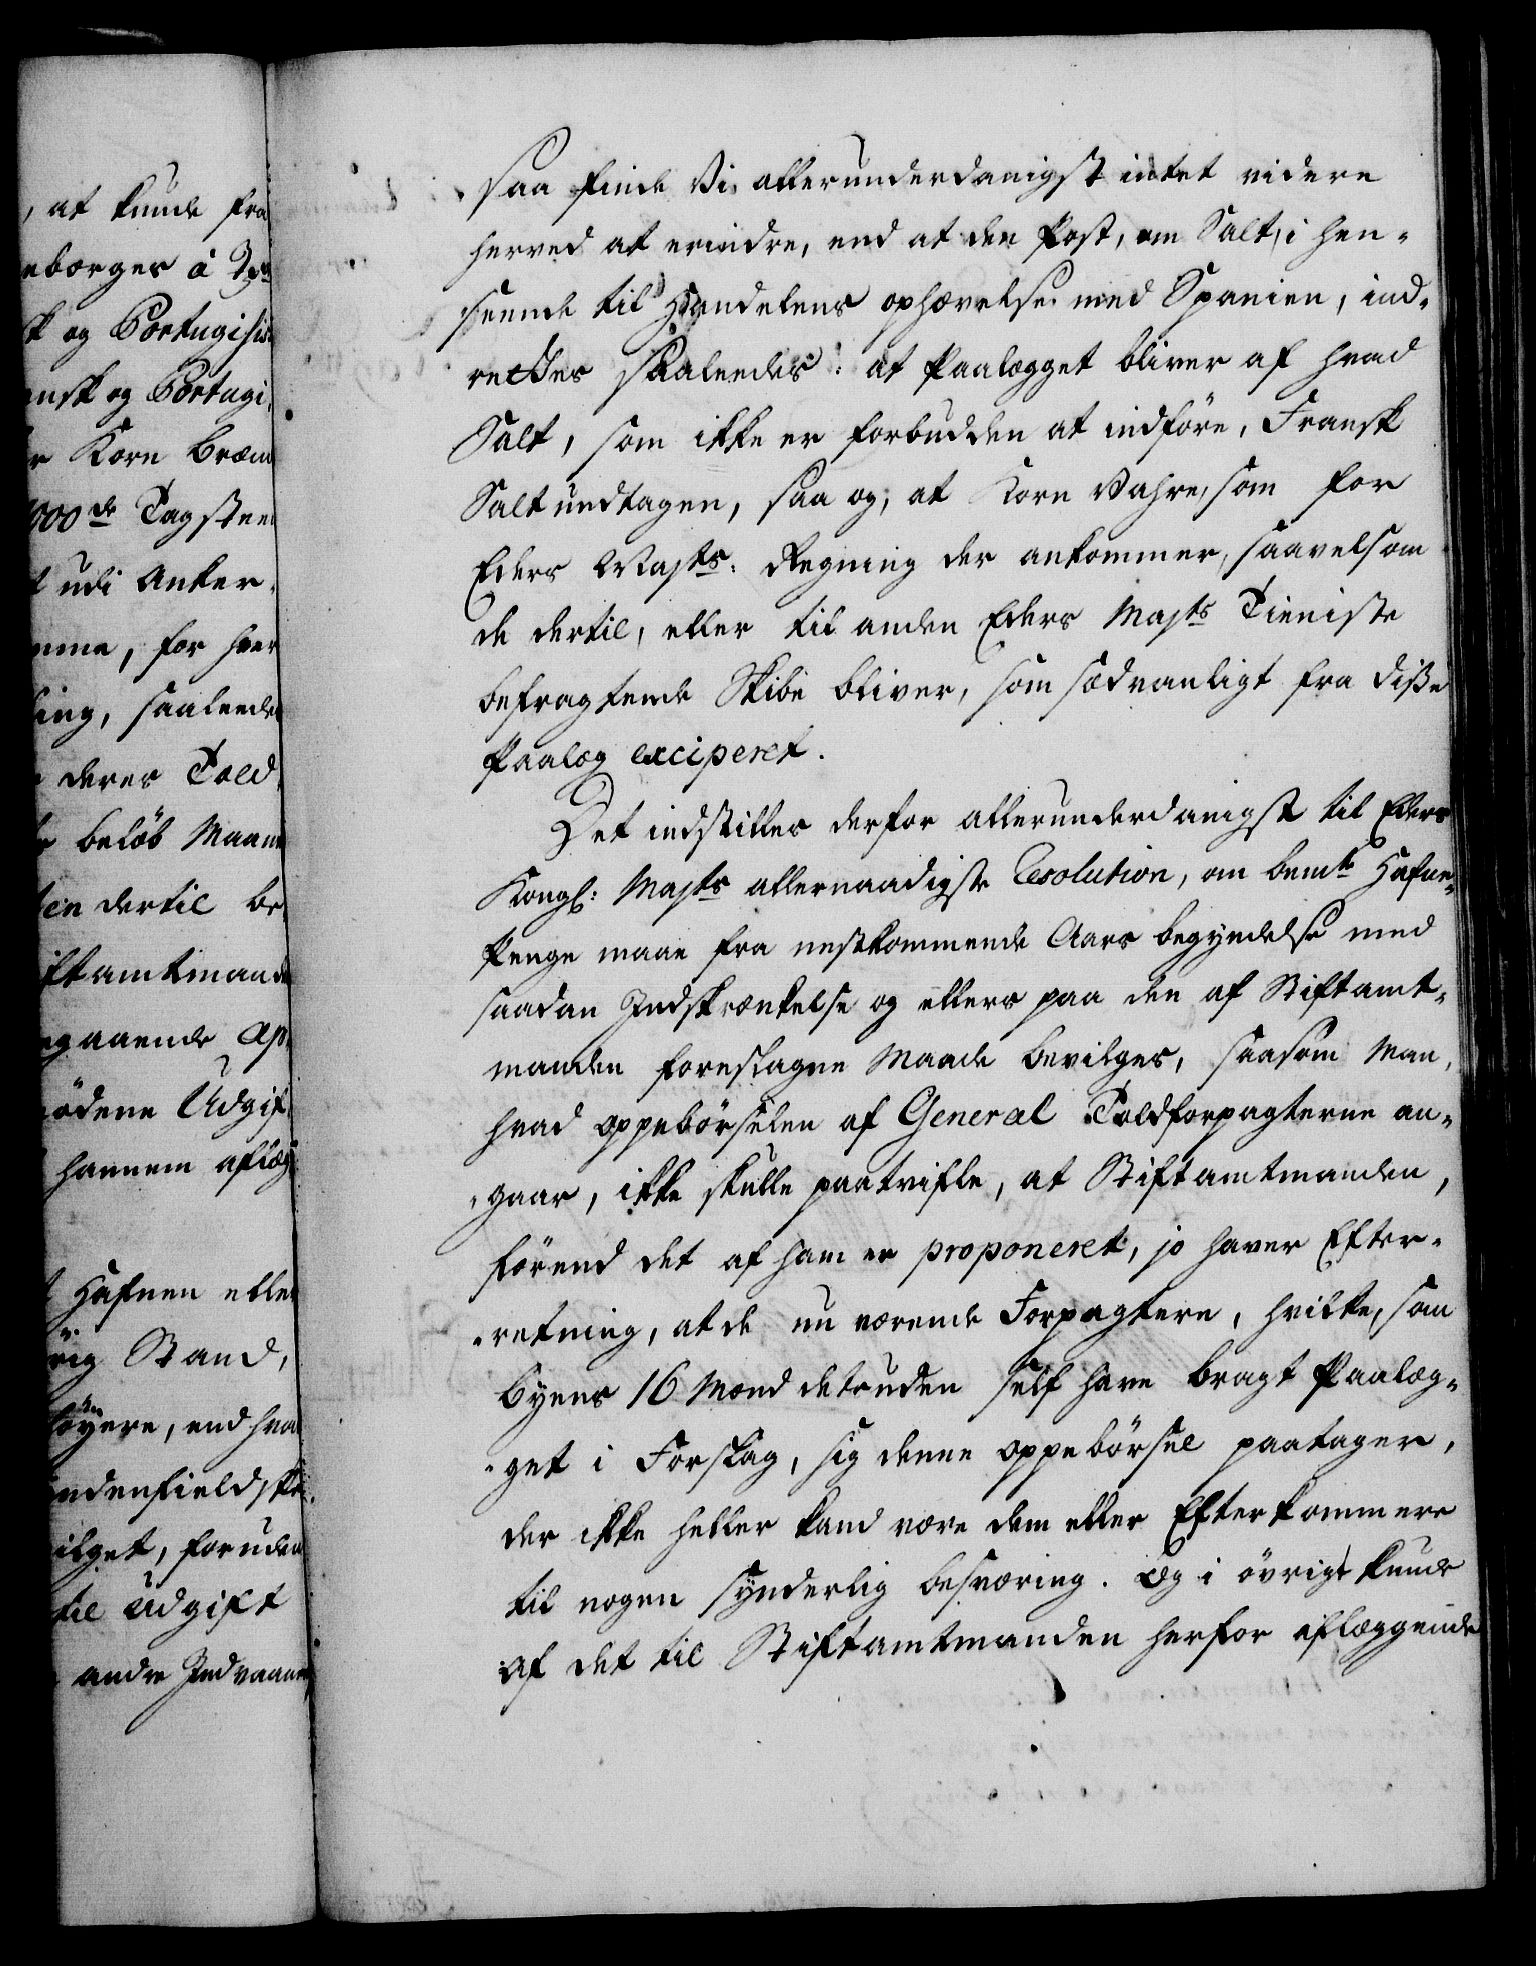 , at kunde fra
eborges à
k og Portugisis
ansk og Portugi,
r Korn
000de Tagsteen
t udi Anker,
mme, for hver
ing, saaleedes
deres Told,
beløb Maane
ten dertil be,
iftamtmande
gaaende
Udgif
hannem aflæg
Hafnen eller
rig Stand,
høyere, end hva
ndenfieldske,
ilget, foruden
til Udgift
andre Indvaane
saa finde Vi allerunderdanigst intet videre
herved at erindre, end at den Post, om Salt, i hen-
seende til Handelens ophævelse med Spanien, ind-
rettes saaleedes: at Paalægget bliver af hvad
Salt, som ikke er forbudden at indföre, Fransk
Salt undtagen, saa og, at Korn Vahre, som for
Eders Majts: Regning der ankommer, saavelsom
de dertil, eller til anden Eders Majts Tieniste
befragtende Skibe bliver, som sædvanligt fra diße
Paalæg exciperet.
Det indstilles derfor allerunderdanigst til Eders
Kongl: Majts allernaadigste Resolution, om bemte Hafne-
Penge maae fra nestkommende Aars begyndelse med
saadan Indskrænkelse og ellers paa den af Stiftamt-
manden foreslagne Maade bevilges, saasom Man,
hvad oppebörselen af General Toldforpagterne an-
gaar, ikke skulle paatvifle, at Stiftamtmanden,
förend det af ham er proponeret, jo haver Efter-
retning, at de nu værende Forpagtere, hvilke, som
Byens 16 Mænd desuden self have bragt Paalæg-
get i Forslag, sig denne oppebörsel paatager,
der ikke heller kand være dem eller Efterkommere
til nogen synderlig besværing. Og i övrigt kunde
af det til Stiftamtmanden herfor aflæggende